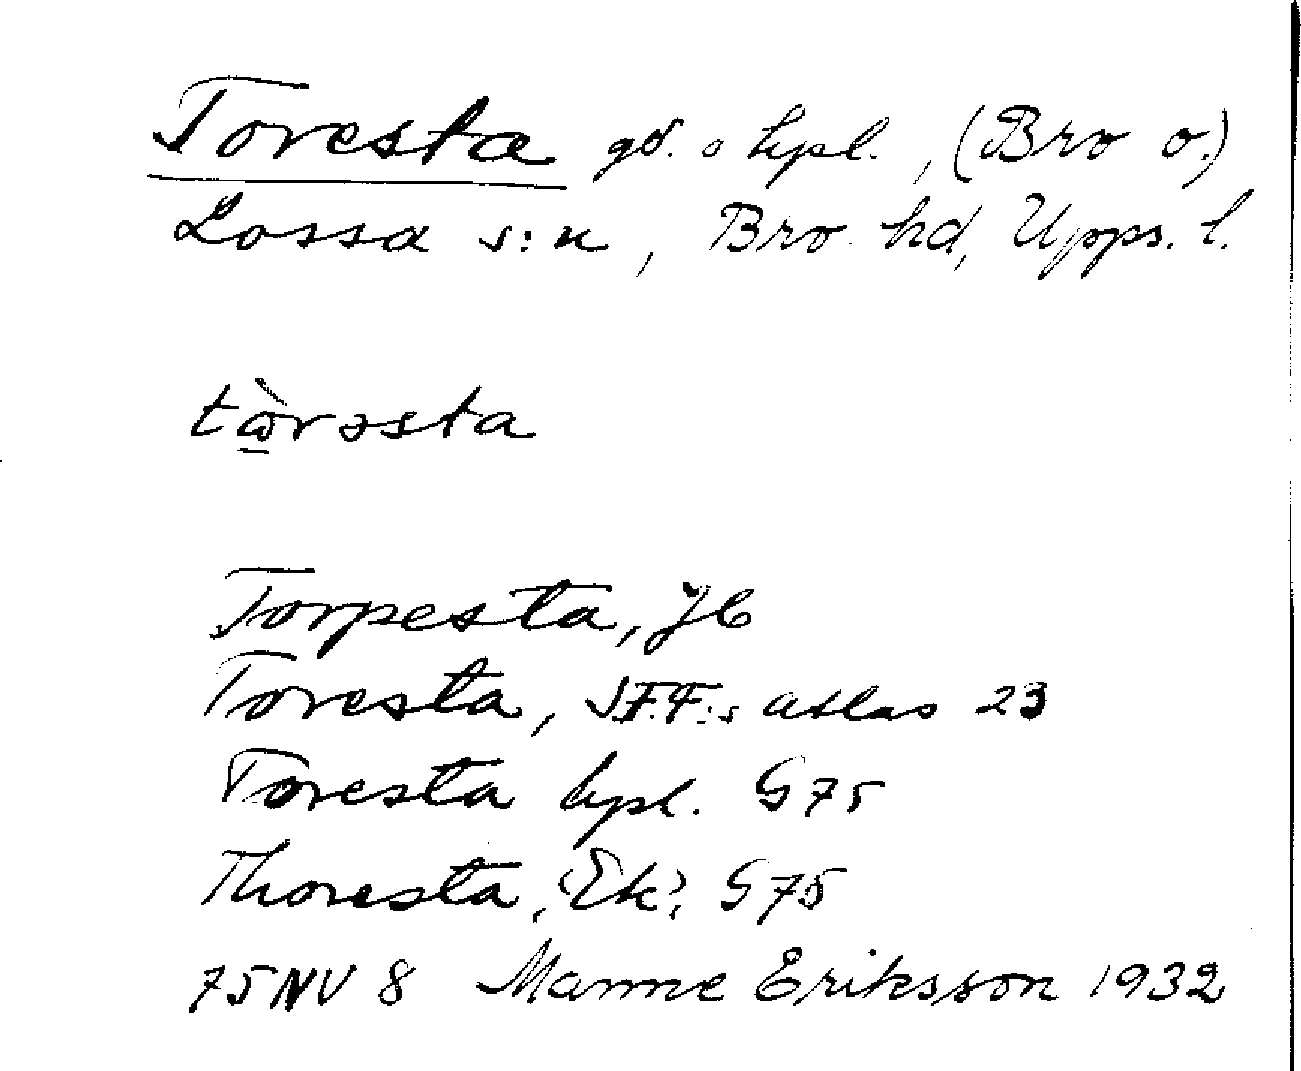 Toresta gd. o hpl., (Bro o.)
Lossa s:n, Bro hd, Upps. l.
tɷ̀̄rəsta
Torpesta, Jb
Toresta, S.T.F.:s atlas 23
Toresta hpl. G 75
Thoresta, (Ek), G 75
75 NV 8 Manne Eriksson 1932